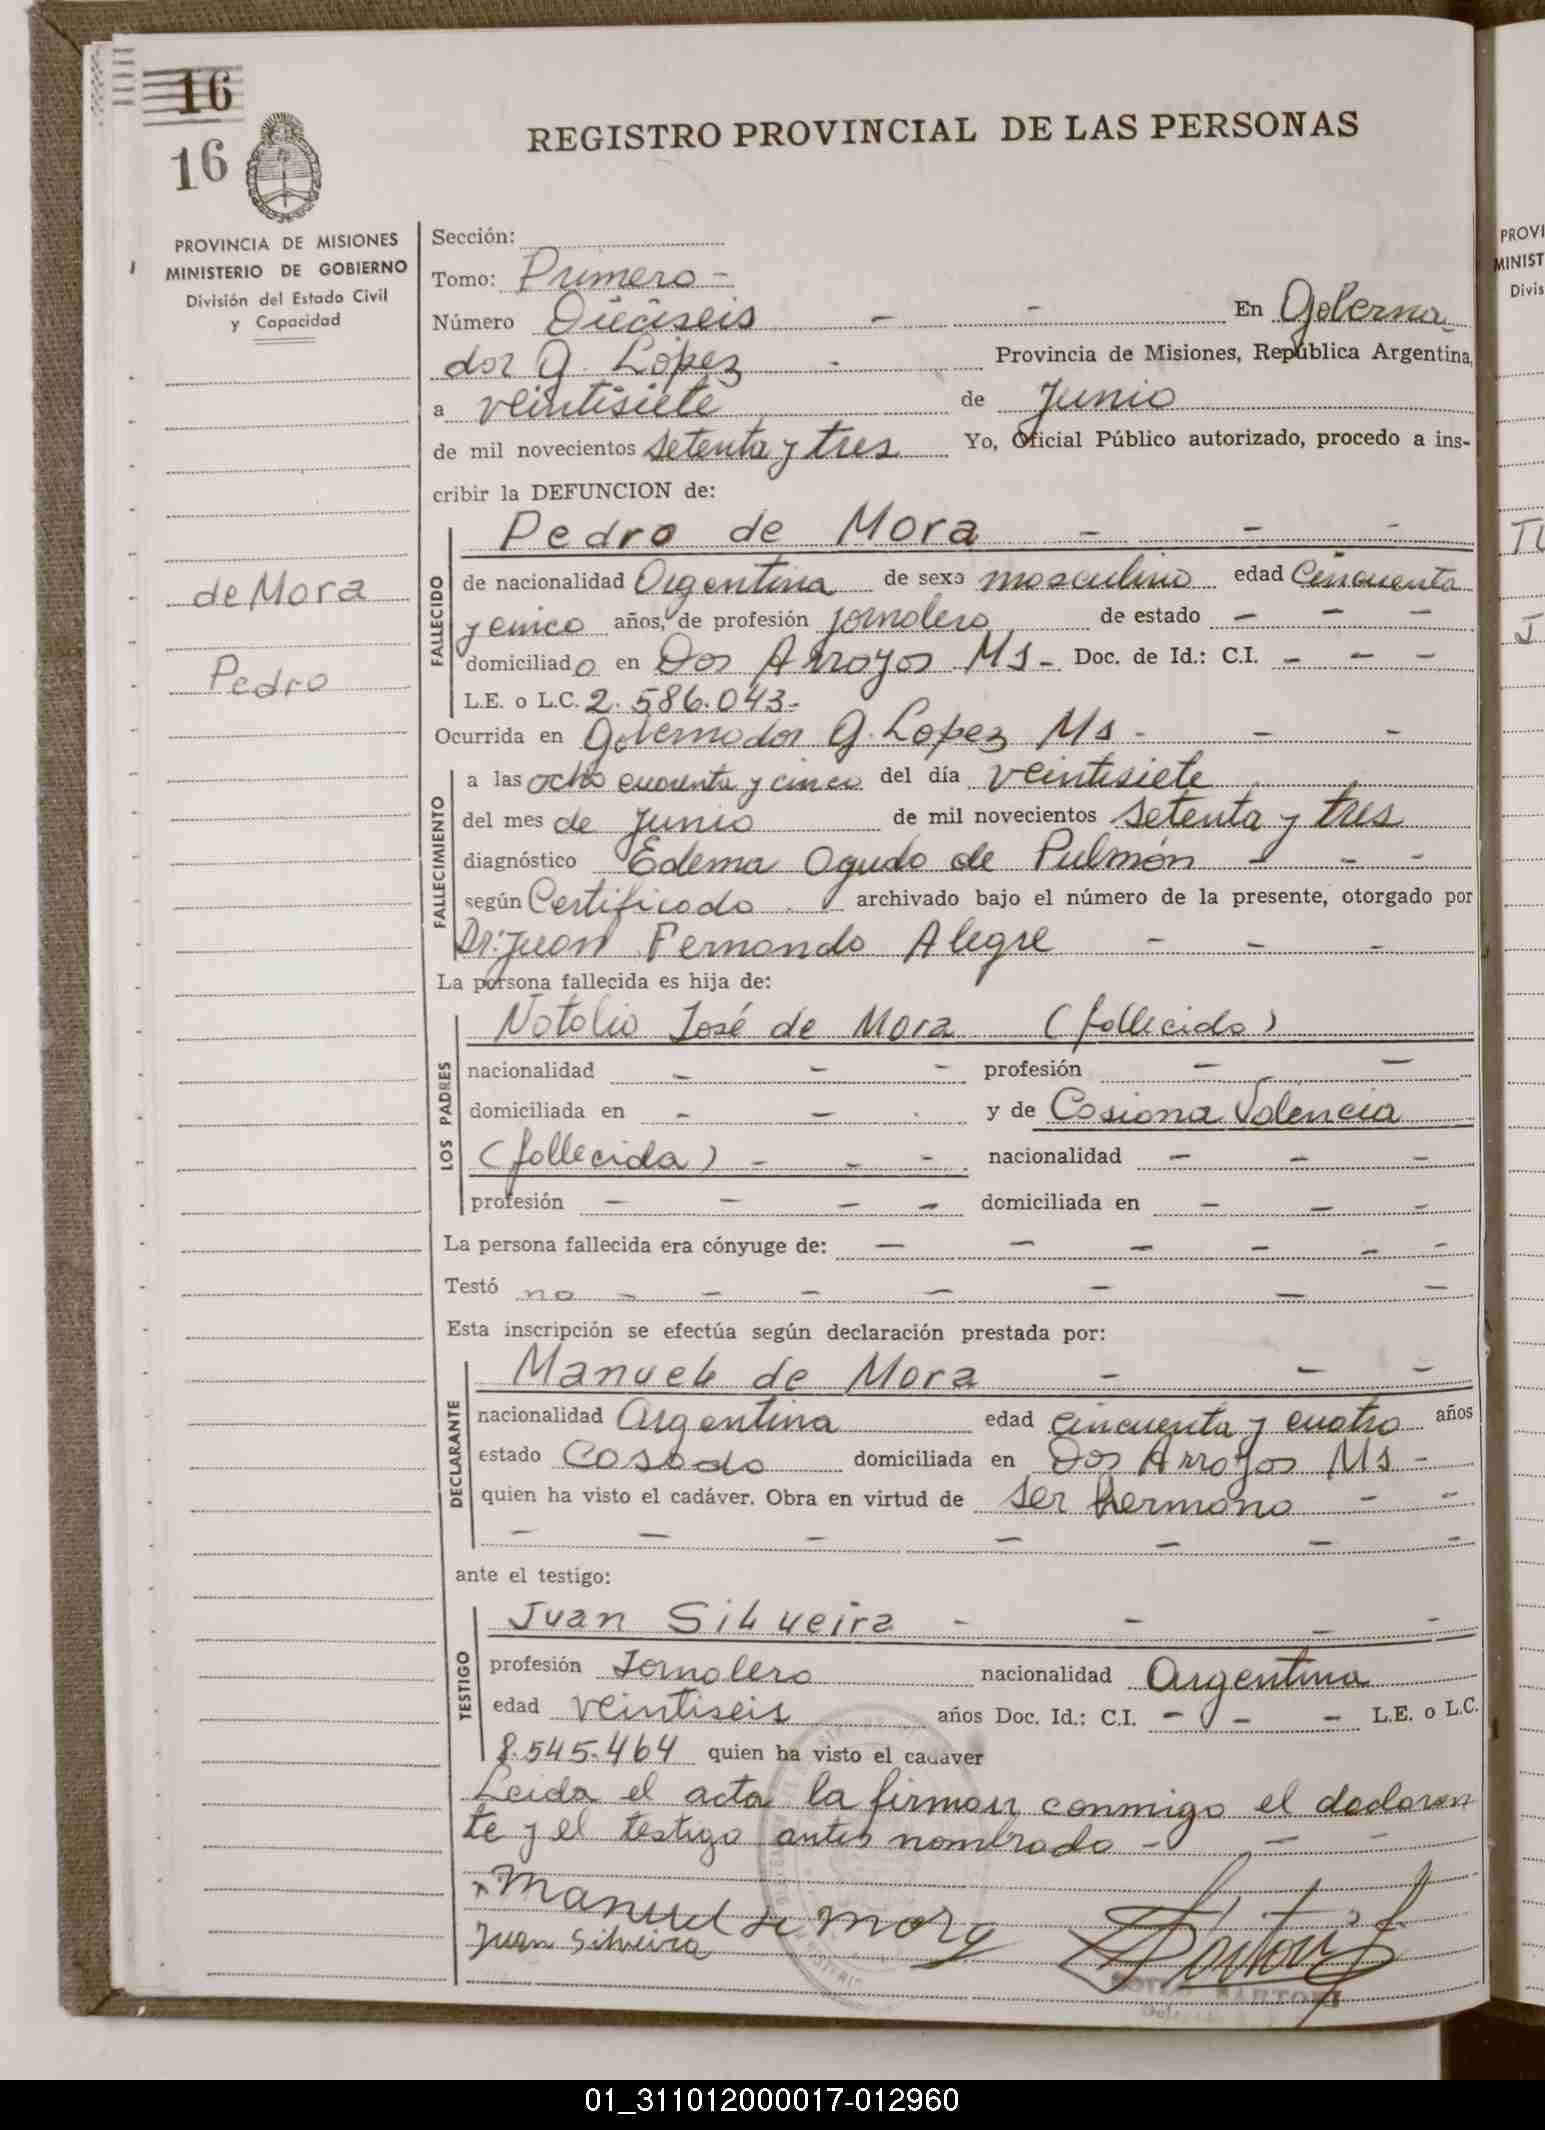 16
16
REGISTRO PROVINCIAL DE LAS PERSONAS
PROVINCIA DE MISIONES
MINISTERIO DE GOBIERNO
División del Estado Civil
y Capacidad
de Mora
Pedro
Sección:
Tomo: Primero -
Número Diéciseis - - En Goberna
dor G. López - Provincia de Misiones, República Argentina,
a veintisiete de Junio
de mil novecientos setenta y tres Yo, Oficial Público autorizado, procedo a ins-
cribir la DEFUNCION de:
FALLECIDO
Pedro de Mora - - -
de nacionalidad Argentina de sexo masculino edad Cincuenta
y cinco años, de profesión jornalero de estado - - -
domiciliado en Dos Arroyos Ms - Doc. de Id.: C.I. - - -
L.E. o L.C. 2.586.043-
Ocurrida en Gobernador G. Lopez Ms - - -
FALLECIMIENTO
a las ocho cuarenta y cinco del día veintisiete
del mes de Junio de mil novecientos setenta y tres
diagnóstico Edema Agudo de Pulmón - - -
según Certificado archivado bajo el número de la presente, otorgado por
Dr. Juan Fernando Alegre - - -
La persona fallecida es hija de:
LOS PADRES
Natalio José de Mora (fallecido)
nacionalidad - - - profesión - -
domiciliada en - - - y de Casiana Valencia
(fallecida) - - - nacionalidad - - -
profesión - - - - domiciliada en - - -
La persona fallecida era cónyuge de: - - - - - -
Testó no - - - - - - -
Esta inscripción se efectúa según declaración prestada por:
DECLARANTE
Manuel de Mora - - -
nacionalidad Argentina edad cincuenta y cuatro años
estado Casado domiciliada en Dos Arroyos Ms -
quien ha visto el cadáver. Obra en virtud de ser hermano - -
- - - - - - -
ante el testigo:
TESTIGO
Juan Silveira - - - -
profesión Jornalero nacionalidad Argentina
edad veintiseis años Doc. Id.: C.I. - - - L.E. o L.C.
8.545.464 quien ha visto el cadáver
Leida el acta la firman conmigo el declaran
te y el testigo antes nombrado - - -
Manuel de Mora
Juan Silveira
SARTORI
PROVI
MINIST
Divis
01_311012000017-012960